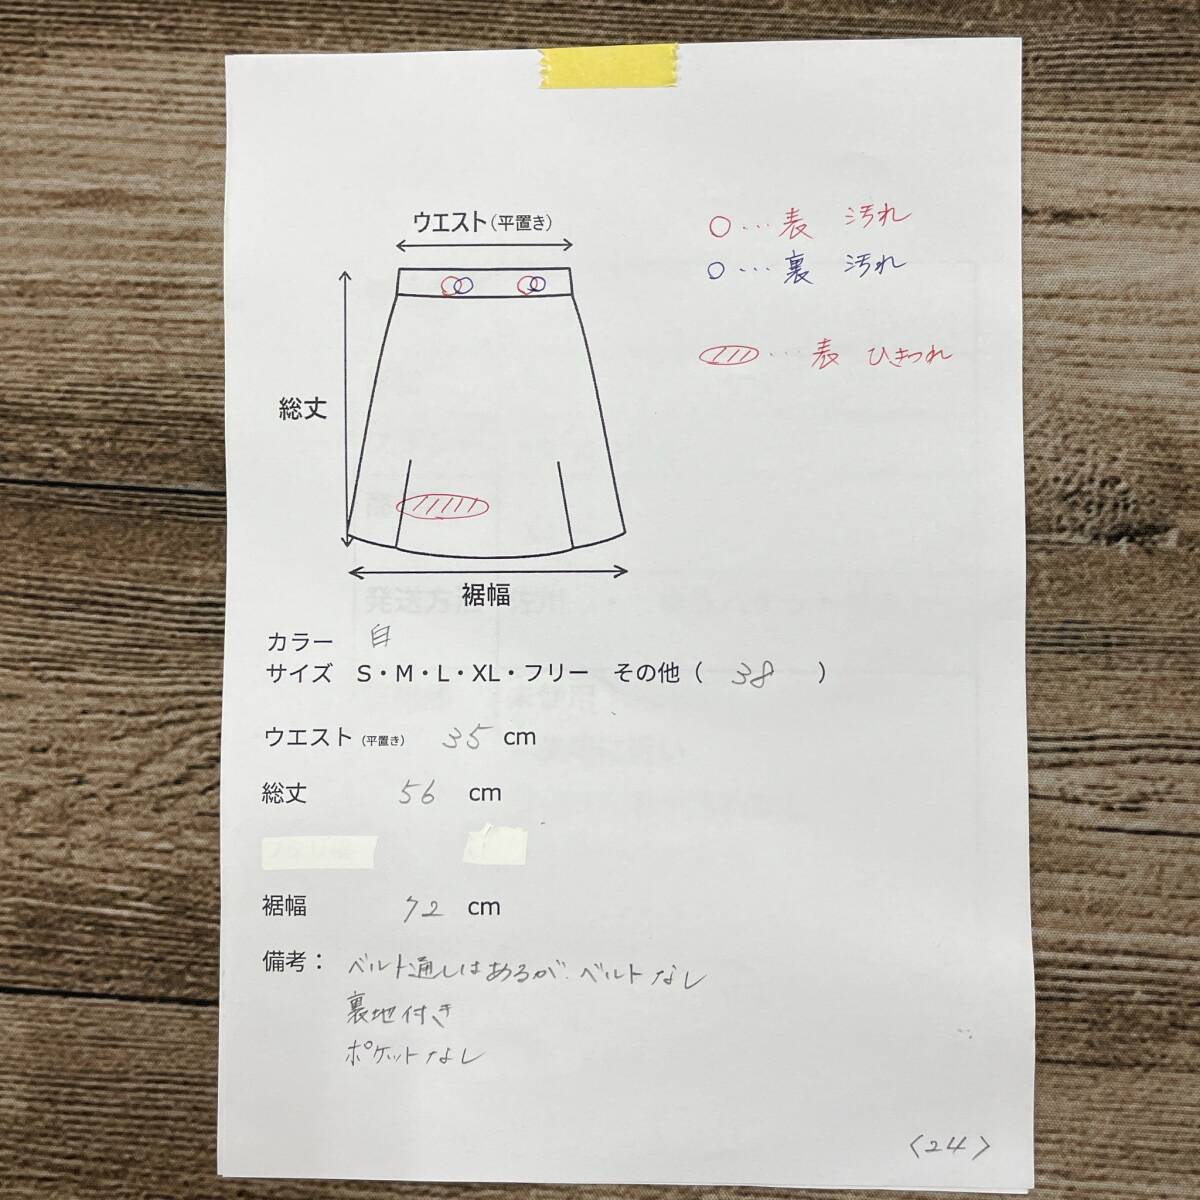 ウエスト(平置き)
○…表 汚れ
○…裏 汚れ
…表 ひきつれ
総丈
裾幅
カラー 白
サイズ S・M・L・XL・フリー その他( 38 )
ウエスト(平置き) 35 cm
総丈 56 cm
裾幅 72 cm
備考: ベルト通しはあるが、ベルトなし
裏地付き
ポケットなし
<24>